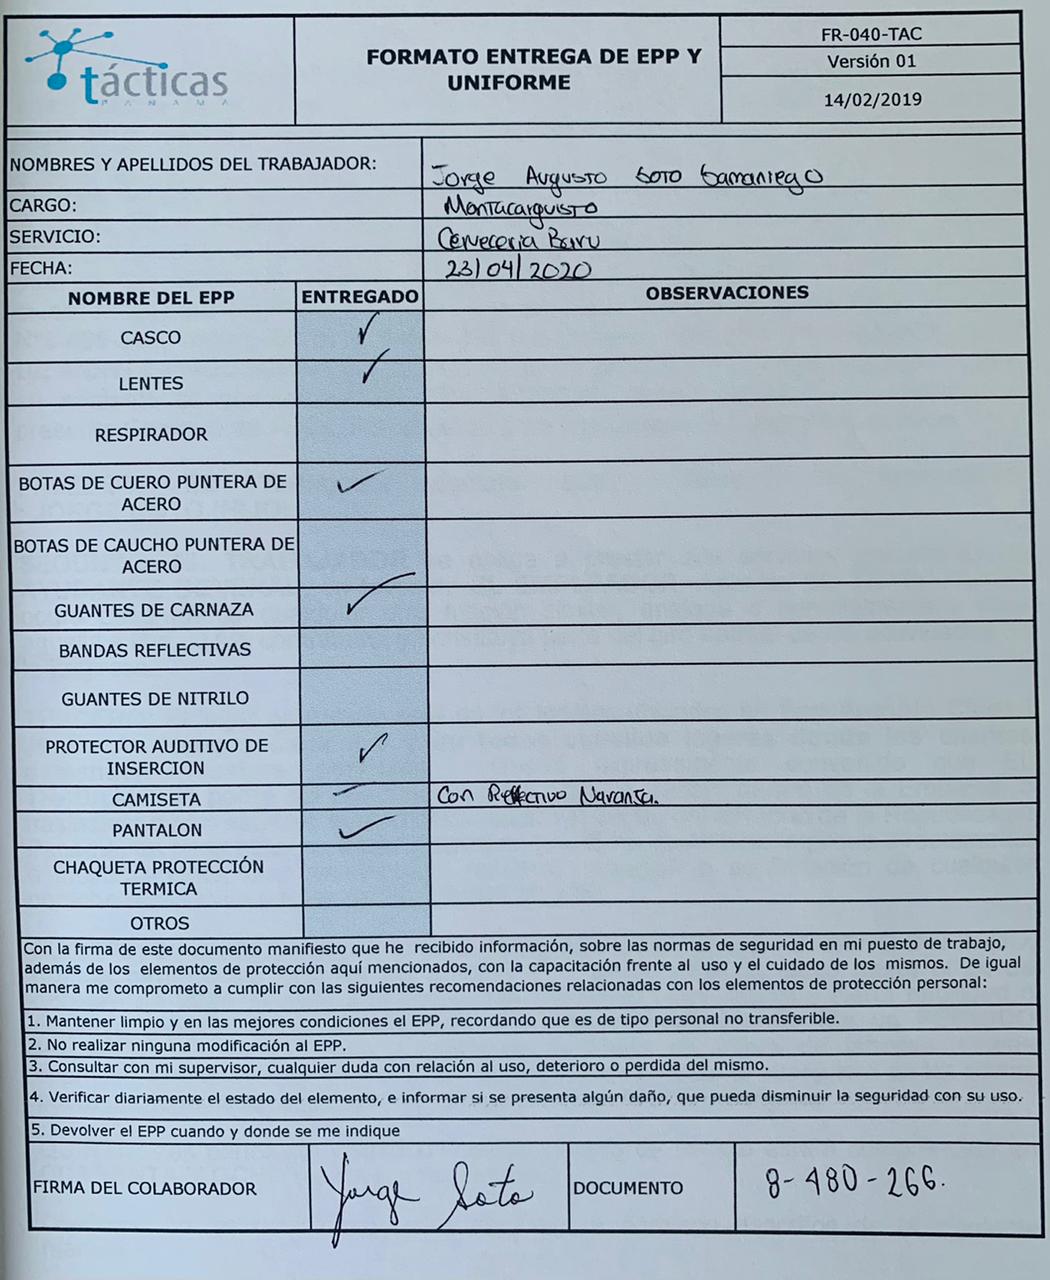 tácticas
PANAMÁ
FORMATO ENTREGA DE EPP Y
UNIFORME
FR-040-TAC
Versión 01
14/02/2019
NOMBRES Y APELLIDOS DEL TRABAJADOR:
Jorge Augusto Soto Samaniego
CARGO:
Montacarguisto
SERVICIO:
Cerveceria Baru
FECHA:
23/04/2020
NOMBRE DEL EPP ENTREGADO OBSERVACIONES
CASCO ✓
LENTES ✓
RESPIRADOR
BOTAS DE CUERO PUNTERA DE
ACERO ✓
BOTAS DE CAUCHO PUNTERA DE
ACERO
GUANTES DE CARNAZA ✓
BANDAS REFLECTIVAS
GUANTES DE NITRILO
PROTECTOR AUDITIVO DE
INSERCION ✓
CAMISETA ✓ Con Reflectivo Naranja.
PANTALON ✓
CHAQUETA PROTECCIÓN
TERMICA
OTROS
Con la firma de este documento manifiesto que he recibido información, sobre las normas de seguridad en mi puesto de trabajo,
además de los elementos de protección aquí mencionados, con la capacitación frente al uso y el cuidado de los mismos. De igual
manera me comprometo a cumplir con las siguientes recomendaciones relacionadas con los elementos de protección personal:
1. Mantener limpio y en las mejores condiciones el EPP, recordando que es de tipo personal no transferible.
2. No realizar ninguna modificación al EPP.
3. Consultar con mi supervisor, cualquier duda con relación al uso, deterioro o perdida del mismo.
4. Verificar diariamente el estado del elemento, e informar si se presenta algún daño, que pueda disminuir la seguridad con su uso.
5. Devolver el EPP cuando y donde se me indique
FIRMA DEL COLABORADOR
Jorge Soto
DOCUMENTO
8-480-266.